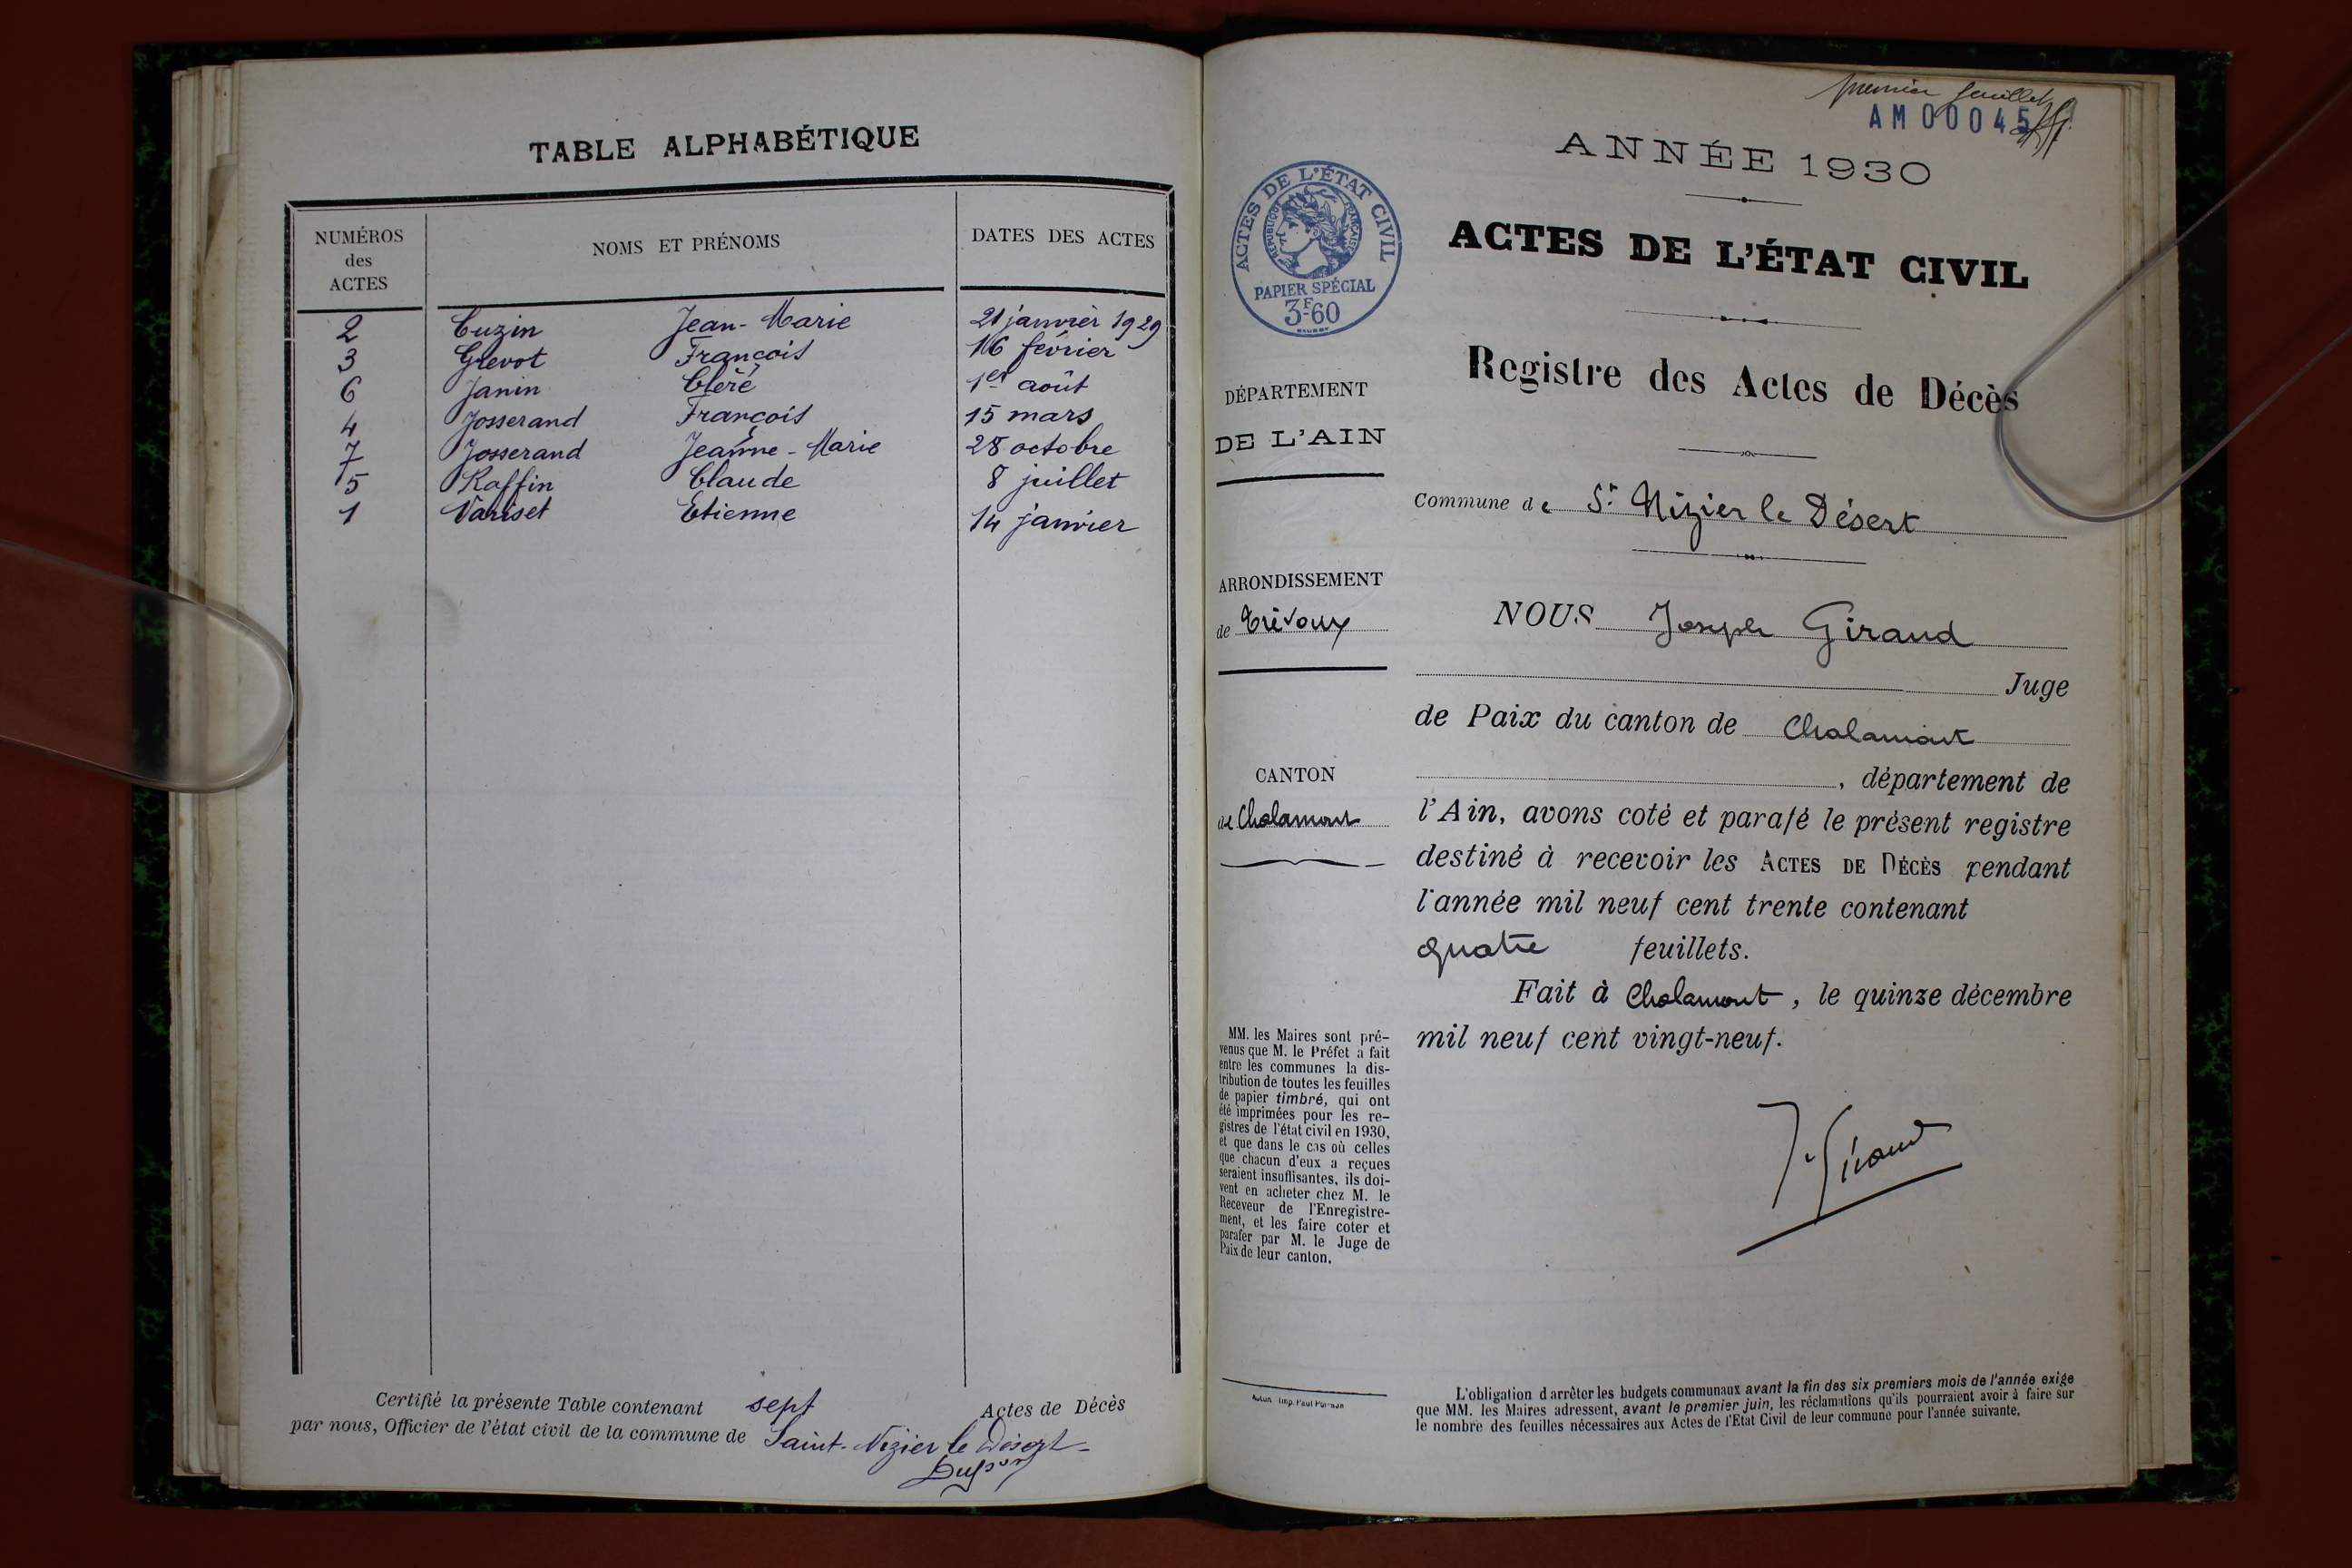 TABLE ALPHABÉTIQUE
NUMÉROS des ACTES NOMS ET PRÉNOMS DATES DES ACTES
2 Cuzin Jean-Marie 21 janvier 1929
3 Grevot François 16 février
6 Janin Cléré 1er août
4 Josserand François 15 mars
7 Josserand Jeanne-Marie 28 octobre
5 Raffin Claude 8 juillet
1 Variset Etienne 14 janvier
Certifié la présente Table contenant sept Actes de Décès
par nous, Officier de l'état civil de la commune de Saint-Nizier le Désert
premier feuillet
AM00045
ANNÉE 1930
ACTES DE L'ÉTAT CIVIL
RÉPUBLIQUE FRANÇAISE
PAPIER SPÉCIAL
3F60
ACTES DE L'ÉTAT CIVIL
Registre des Actes de Décès
DÉPARTEMENT
DE L'AIN
Commune de St Nizier le Désert
ARRONDISSEMENT
de Trévoux
NOUS Joseph Giraud
Juge
de Paix du canton de Chalamont
CANTON
de Chalamont
, département de
l'Ain, avons coté et parafé le présent registre
destiné à recevoir les ACTES DE DÉCÈS pendant
l'année mil neuf cent trente contenant
quatre feuillets.
Fait à Chalamont, le quinze décembre
mil neuf cent vingt-neuf.
J. Giraud
MM. les Maires sont pré-
venus que M. le Préfet a fait
entre les communes la dis-
tribution de toutes les feuilles
de papier timbré, qui ont
été imprimées pour les re-
gistres de l'état civil en 1930,
et que dans le cas où celles
que chacun d'eux a reçues
seraient insuffisantes, ils doi-
vent en acheter chez M. le
Receveur de l'Enregistre-
ment, et les faire coter et
parafer par M. le Juge de
Paix de leur canton.
L'obligation d'arrêter les budgets communaux avant la fin des six premiers mois de l'année exige
que MM. les Maires adressent, avant le premier juin, les réclamations qu'ils pourraient avoir à faire sur
le nombre des feuilles nécessaires aux Actes de l'Etat Civil de leur commune pour l'année suivante.